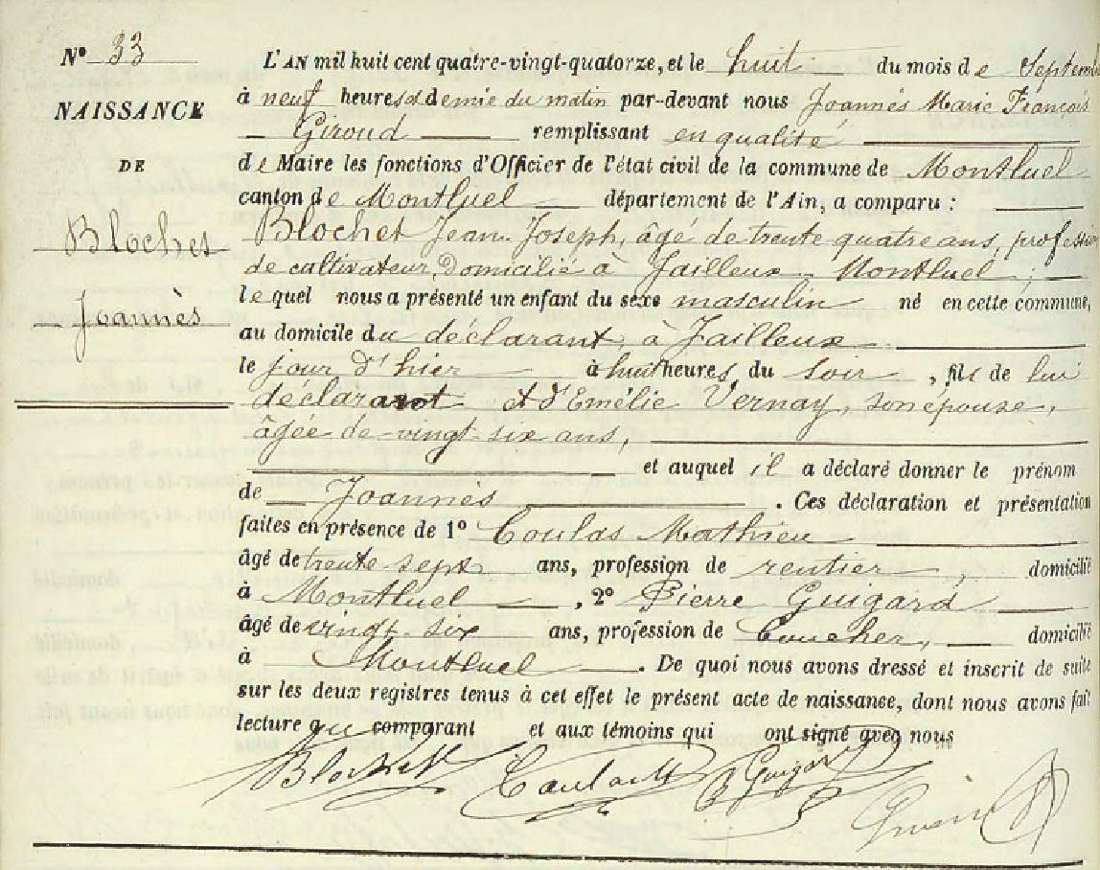 N° 33
NAISSANCE
DE
Blochet
Joannès
L'AN mil huit cent quatre-vingt-quatorze, et le huit du mois de Septemb
à neuf heures & demie du matin par-devant nous Joannés Marie François
Giroud remplissant en qualité
de Maire les fonctions d'Officier de l'état civil de la commune de Montluel
canton de Montluel département de l'Ain, a comparu :
Blochet Jean Joseph, âgé de trente quatre ans, profession
de cultivateur, domicilié à Jailleux Montluel,
lequel nous a présenté un enfant du sexe masculin né en cette commune,
au domicile du déclarant, à Jailleux
le jour d'hier à huit heures du soir, fils de lui
déclarant et d'Emélie Vernay, son épouse,
âgée de vingt six ans,
et auquel il a déclaré donner le prénom
de Joannes. Ces déclaration et présentation
faites en présence de 1° Coulas Mathieu
âgé de trente sept ans, profession de rentier, domicilié
à Montluel, 2° Pierre Guigard
âgé de vingt six ans, profession de Coucher, domicilié
à Montluel. De quoi nous avons dressé et inscrit de suite
sur les deux registres tenus à cet effet le présent acte de naissance, dont nous avons fait
lecture au comparant et aux témoins qui ont signé avec nous
Blochet Coulas M P Guigard